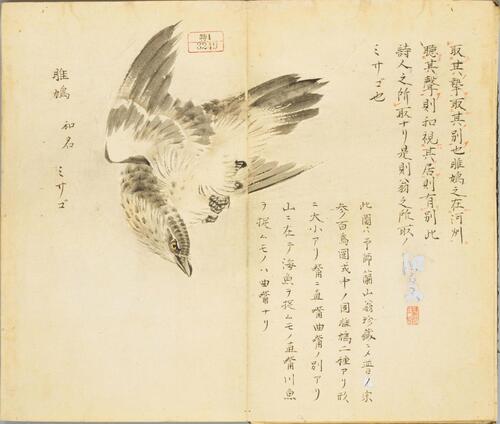 取其摯取其別也雎鳩之在河州
聽其聲則和視其居則有別此
詩人之所取ナリ是則翁之所取ノ
ミサゴ也
此圖ハ予師蘭山翁珍藏ニメ晋ノ宋
参百鳥圖式中ノ圖雎鳩二種アリ形
ニ大小アリ觜ニ直觜曲觜ノ別アリ
山ニ在テ海魚ヲ捉ムモノ直觜川魚
ヲ捉ムモノハ曲觜ナリ
特1
3249
雎鳩 和名 ミサゴ